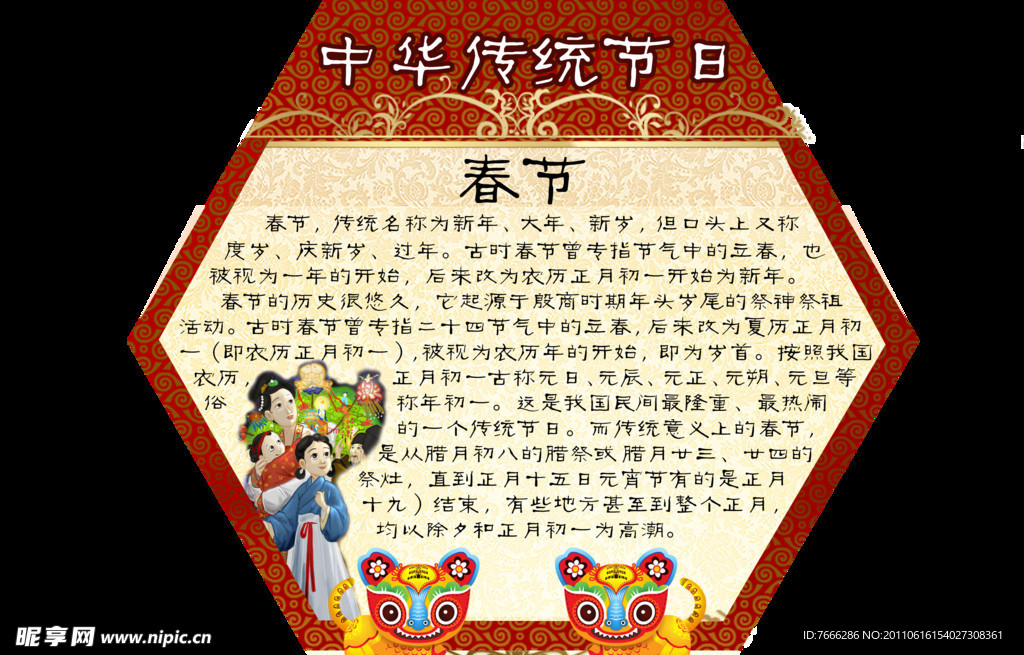 中华传统节日
春节
春节，传统名称为新年、大年、新岁，但口头上又称
度岁、庆新岁、过年。古时春节曾专指节气中的立春，也
被视为一年的开始，后来改为农历正月初一开始为新年。
春节的历史很悠久，它起源于殷商时期年头岁尾的祭神祭祖
活动。古时春节曾专指二十四节气中的立春，后来改为夏历正月初
一（即农历正月初一），被视为农历年的开始，即为岁首。按照我国
农历，正月初一古称元日、元辰、元正、元朔、元旦等
俗称年初一。这是我国民间最隆重、最热闹
的一个传统节日。而传统意义上的春节，
是从腊月初八的腊祭或腊月廿三、廿四的
祭灶，直到正月十五日元宵节有的是正月
十九）结束，有些地方甚至到整个正月，
均以除夕和正月初一为高潮。
昵享网 www.nipic.cn
ID:7666286 NO:20110616154027308361